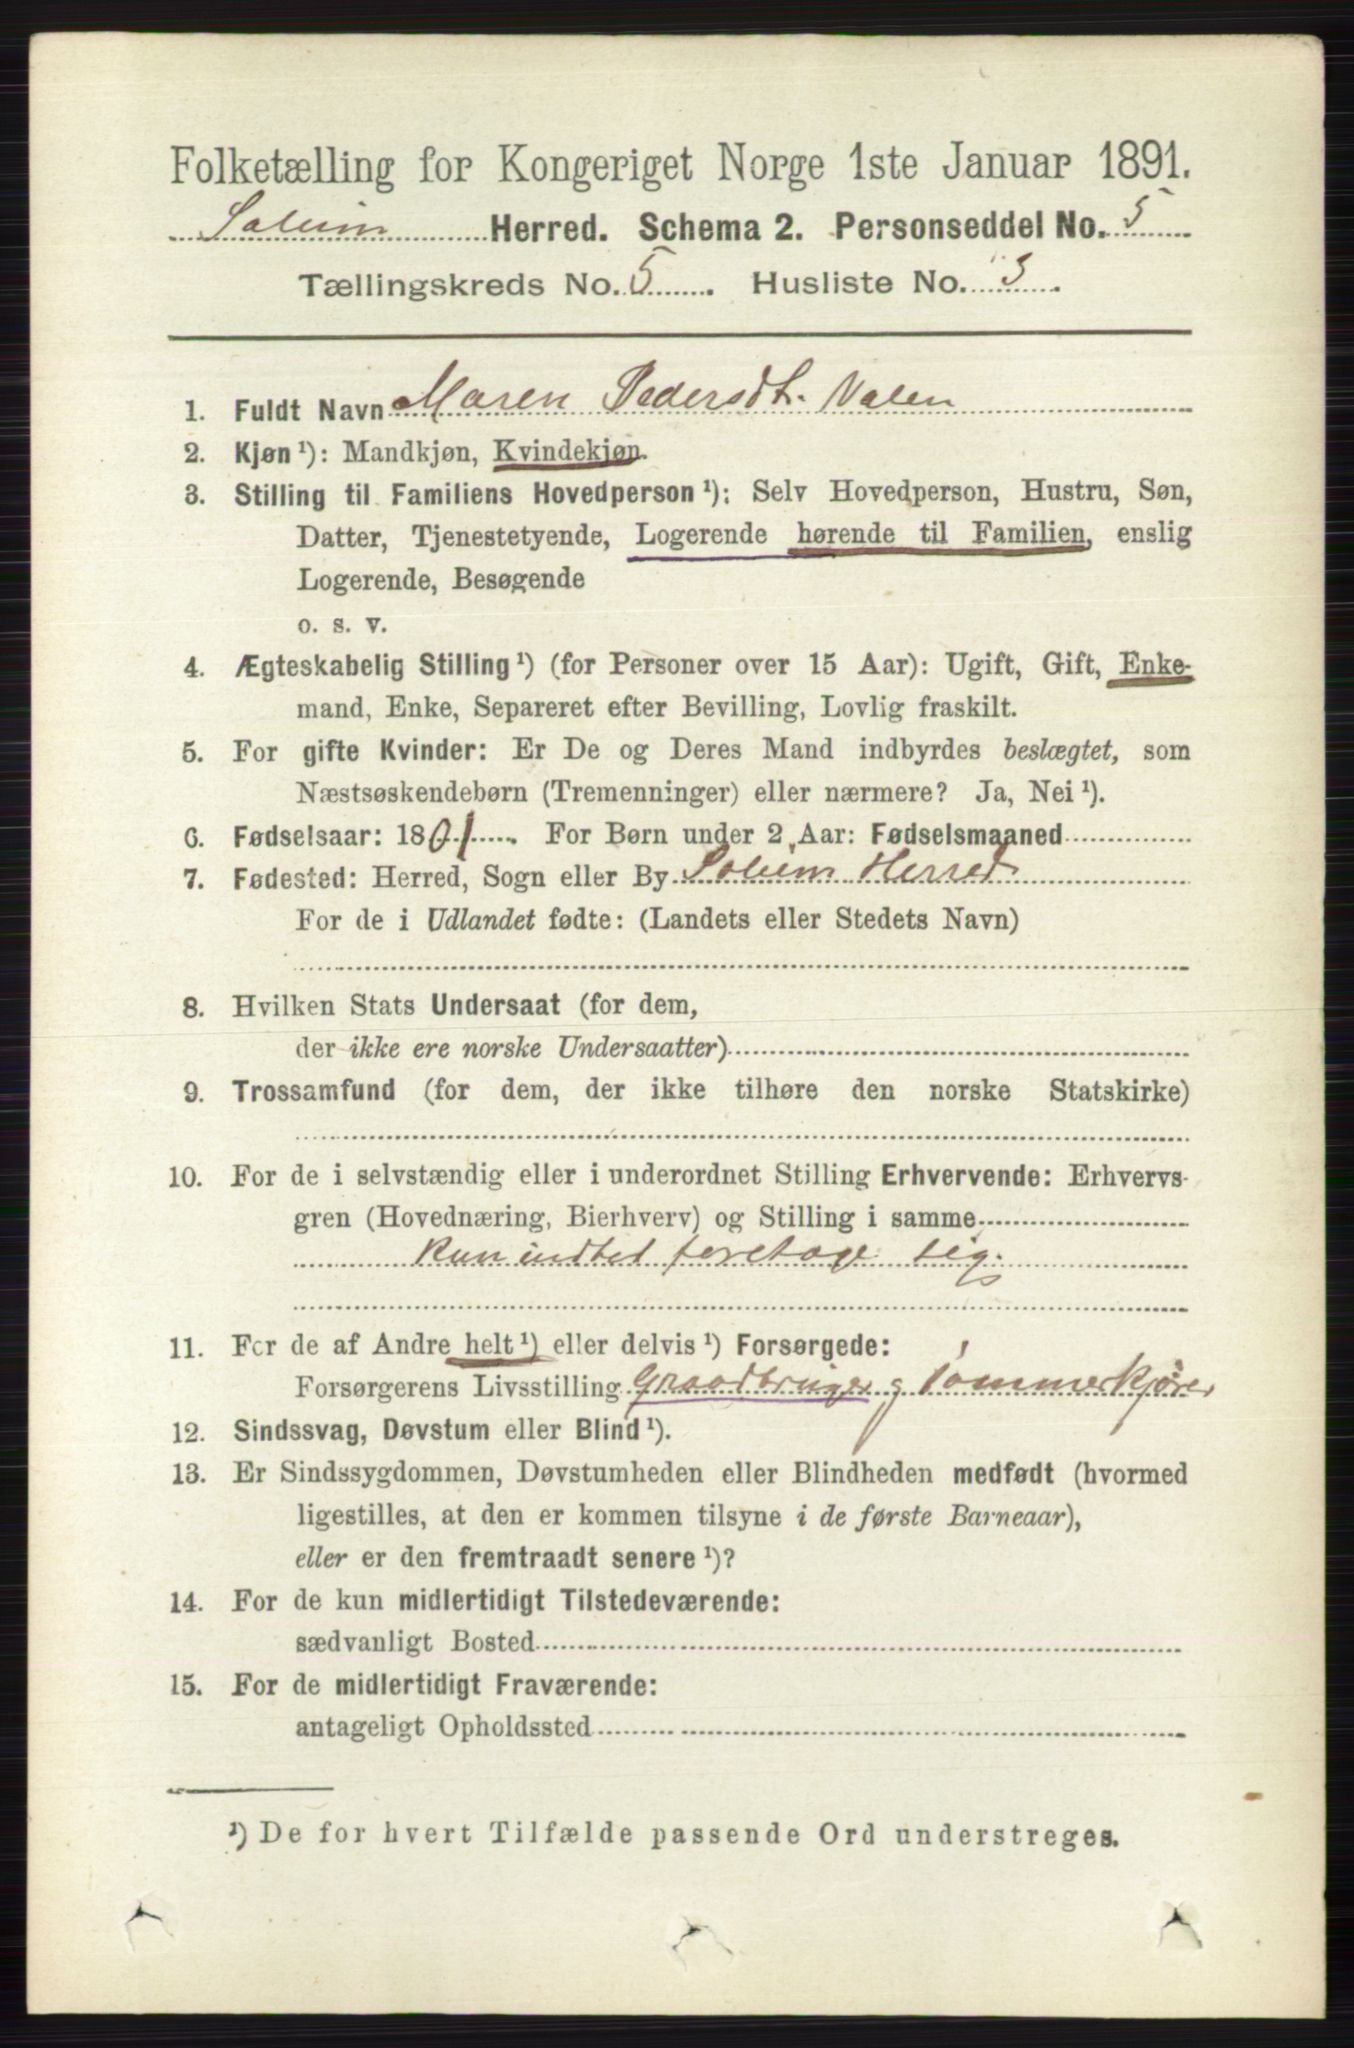 Folketælling for Kongeriget Norge 1ste Januar 1891.
Solum Herred. Schema 2. Personseddel No. 5
Tællingskreds No. 5 . Husliste No. 3 .
1. Fuldt Navn Maren Pedersdt. Valen
2. Kjøn ¹): Mandkjøn, Kvindekjøn.
3. Stilling til Familiens Hovedperson ¹): Selv Hovedperson, Hustru, Søn,
Datter, Tjenestetyende, Logerende hørende til Familien, enslig
Logerende, Besøgende
o. s. v.
4. Ægteskabelig Stilling ¹) (for Personer over 15 Aar): Ugift, Gift, Enke-
mand, Enke, Separeret efter Bevilling, Lovlig fraskilt.
5. For gifte Kvinder: Er De og Deres Mand indbyrdes beslægtet, som
Næstsøskendebørn (Tremenninger) eller nærmere? Ja, Nei ¹).
6. Fødselsaar: 1801. For Børn under 2 Aar: Fødselsmaaned
7. Fødested: Herred, Sogn eller By Solum Herred
For de i Udlandet fødte: (Landets eller Stedets Navn)
8. Hvilken Stats Undersaat (for dem,
der ikke ere norske Undersaatter)
9. Trossamfund (for dem, der ikke tilhøre den norske Statskirke)
10. For de i selvstændig eller i underordnet Stilling Erhvervende: Erhvervs-
gren (Hovednæring, Bierhverv) og Stilling i samme
kun indtet foretage sig.
11. For de af Andre helt ¹) eller delvis ¹) Forsørgede:
Forsørgerens Livsstilling Graadbruger g Tømmerkjører
12. Sindssvag, Døvstum eller Blind ¹).
13. Er Sindssygdommen, Døvstumheden eller Blindheden medfødt (hvormed
ligestilles, at den er kommen tilsyne i de første Barneaar),
eller er den fremtraadt senere ¹)?
14. For de kun midlertidigt Tilstedeværende:
sædvanligt Bosted
15. For de midlertidigt Fraværende:
antageligt Opholdssted
¹) De for hvert Tilfælde passende Ord understreges.